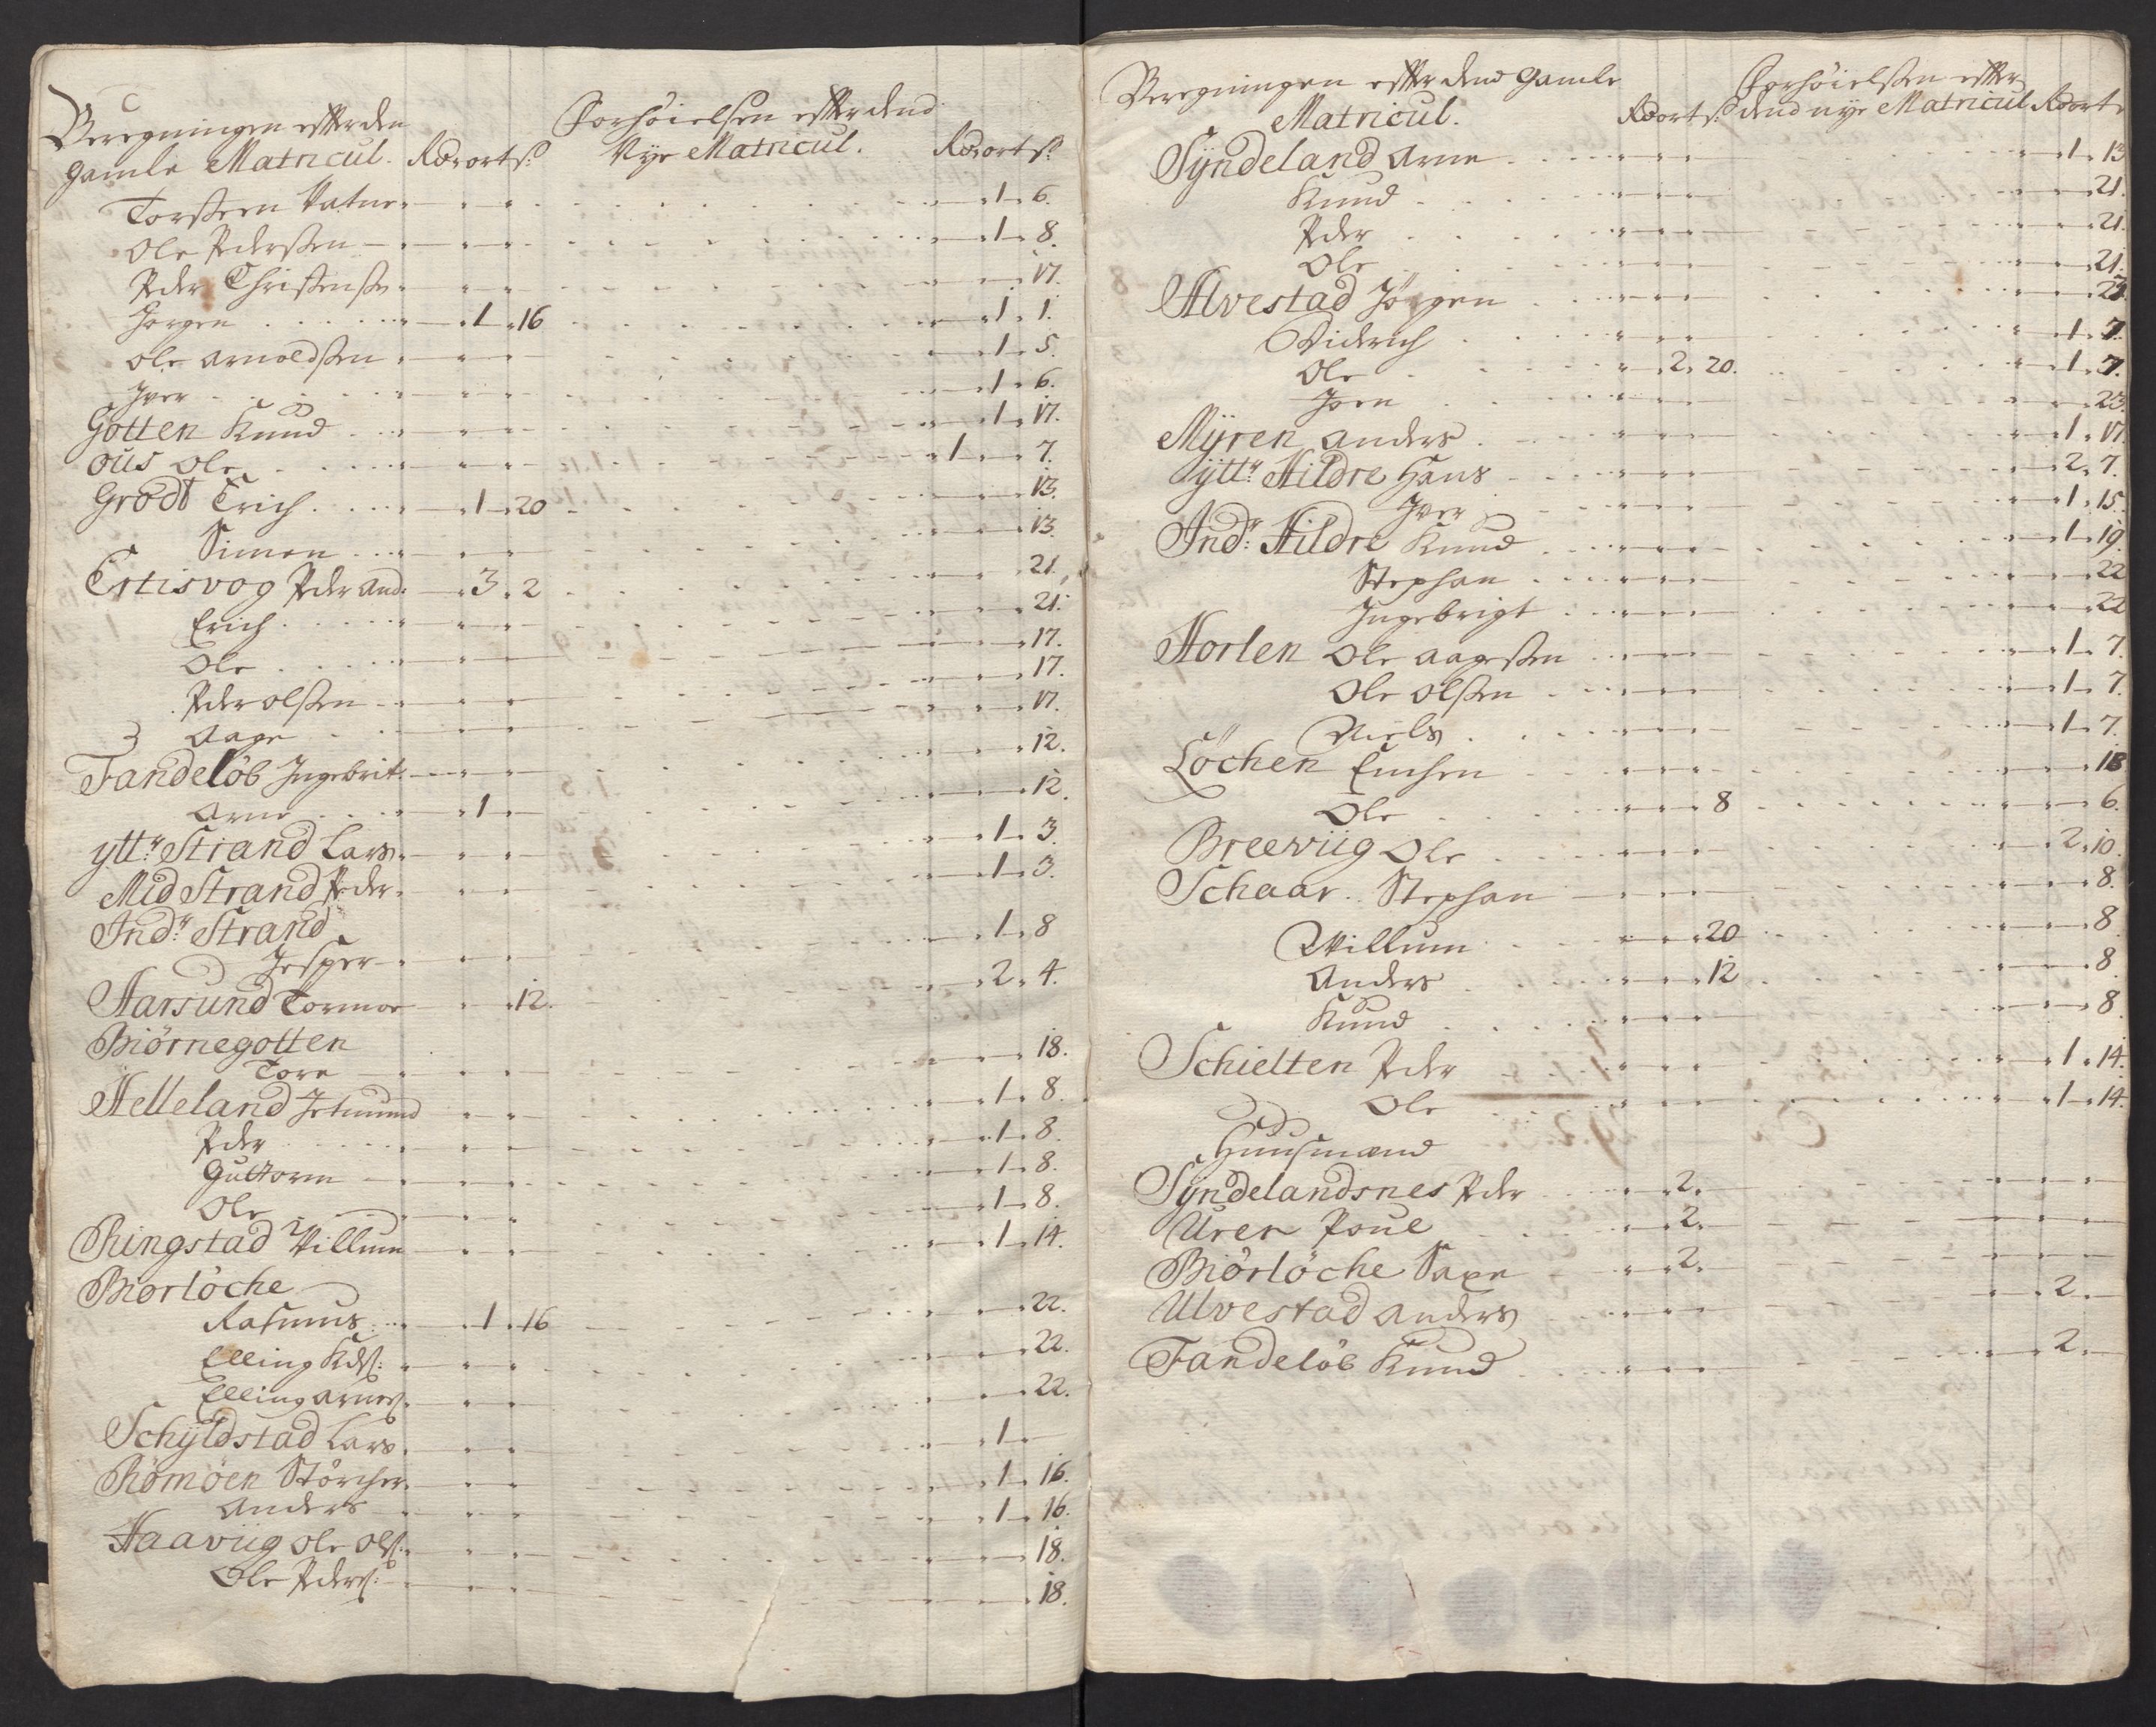 Beregningen effter den
gamle Matricul. Rdr ort s:
Forhøielsen effter dend
Nye Matricul. Rdr ort s:
Torsteen Vatne 1 6.
Ole Pedersen 1 8.
Peder Christensen 17.
Jørgen 1 16 1 1.
Ole Arnoldsen 1 5.
Iver 1 6.
Gotten Knud 1 17.
Ous Ole 1 7.
Grodt Erich 1 20 13.
Simen 13.
Ertisvog Peder And: 3 2 21.
Erich 21.
Ole 17.
Peder Olsen 17.
Aage 17.
Fandeløb Ingebrit 12.
Arne 1 12.
ytt:r Strand Lars 1 3.
Mid Strand Peder 1 3.
Ind:r Strand
Jesper 1 8
Harsund Tormoe 12. 2 4.
Biørnegotten
Tore 18.
Helleland Jetmund 1 8.
Peder 1 8.
Guttorm 1 8.
Ole 1 8.
Ringstad Villum 1 14.
Biorløche
Rasmus 1 16 22.
Elling Kds: 22.
Elling Arnes: 22.
Schyldstad Lars 1
Rømøen Størcher 1 16.
Anders 1 16.
Haaviig Ole Ols: 18.
Ole Peders: 18.
Beregningen effter dend gamle
Matricul. Rdr ort s:
Forhøielsen effter
dend nye Matricul Rdr ort s
Syndeland Arne 1 13
Knud 21.
Peder 21.
Ole 21.
Alvestad Jörgen 21.
Diderich 1 7.
Ole 2 20. 1 7.
Joen 23.
Myren Anders 1 17
ytt:r Hildre Hans 2 7.
Iver 1 15.
Ind:r Hildre Knud 1 19.
Stephan 22
Ingebrigt 22
Horlen Ole Aagesen 1 7.
Ole Olsen 1 7.
Niels 1 7.
Löchen Einchen 18
Ole 8 6.
Breeviig Ole 2 10.
Schaar. Stephan 8.
Willum 20 8
Anders 12 8
Knud 8
Schielten Peder 1 14.
Ole 1 14.
Huusmænd
Syndelandsnes Peder 2.
Uren Poul 2.
Biörlöche Saxe 2.
Ulvestad Anders 2.
Fandelöb Knud 2.